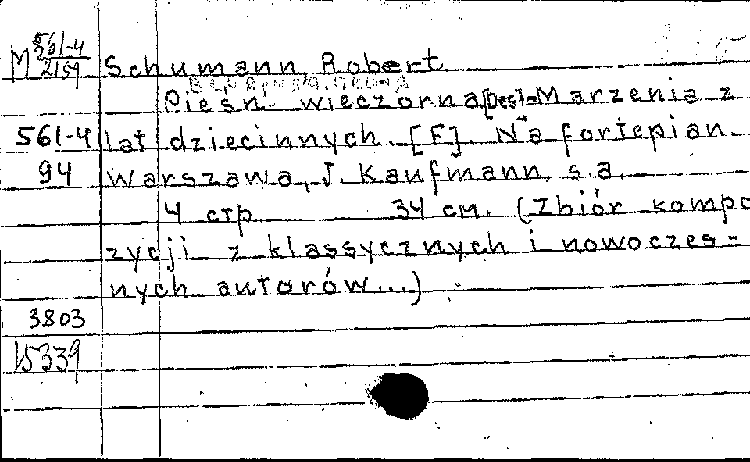 M 561-4/2159 Schumann Robert
Pieśń wieczorna [Des]=Marzenia z
561-4 lat dziecinnych. [F]. Na fortepian.
94 Warszawa, J. Kaufmann, s.a.
4 стр. 34 см. (Zbiór kompo
zycji z klassycznych i nowoczes-
nych autorów...)
3803
15339